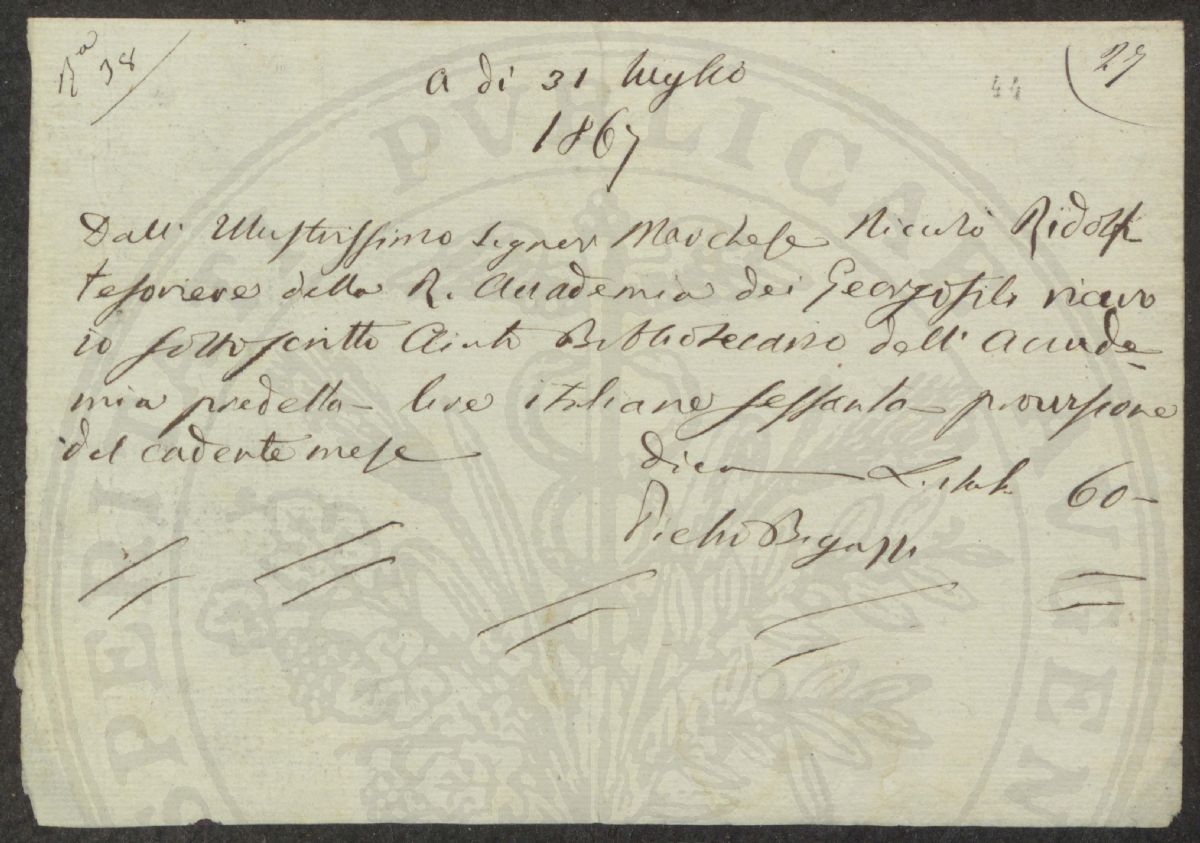 Ra 38
27
44
A dì 31 luglio
1867
Dall' Illustrissimo Signor Marchese Niccolò Ridolfi
tesoriere della R. Accademia dei Georgofili ricevo
io sottoscritto Aiuto Bibliotecario dell' Accade-
mia predetta lire italiane sessanta provvisione
del cadente mese
dico L. ital. 60-
Pietro Bigazzi
PUBLICAE
PROSPERITATI